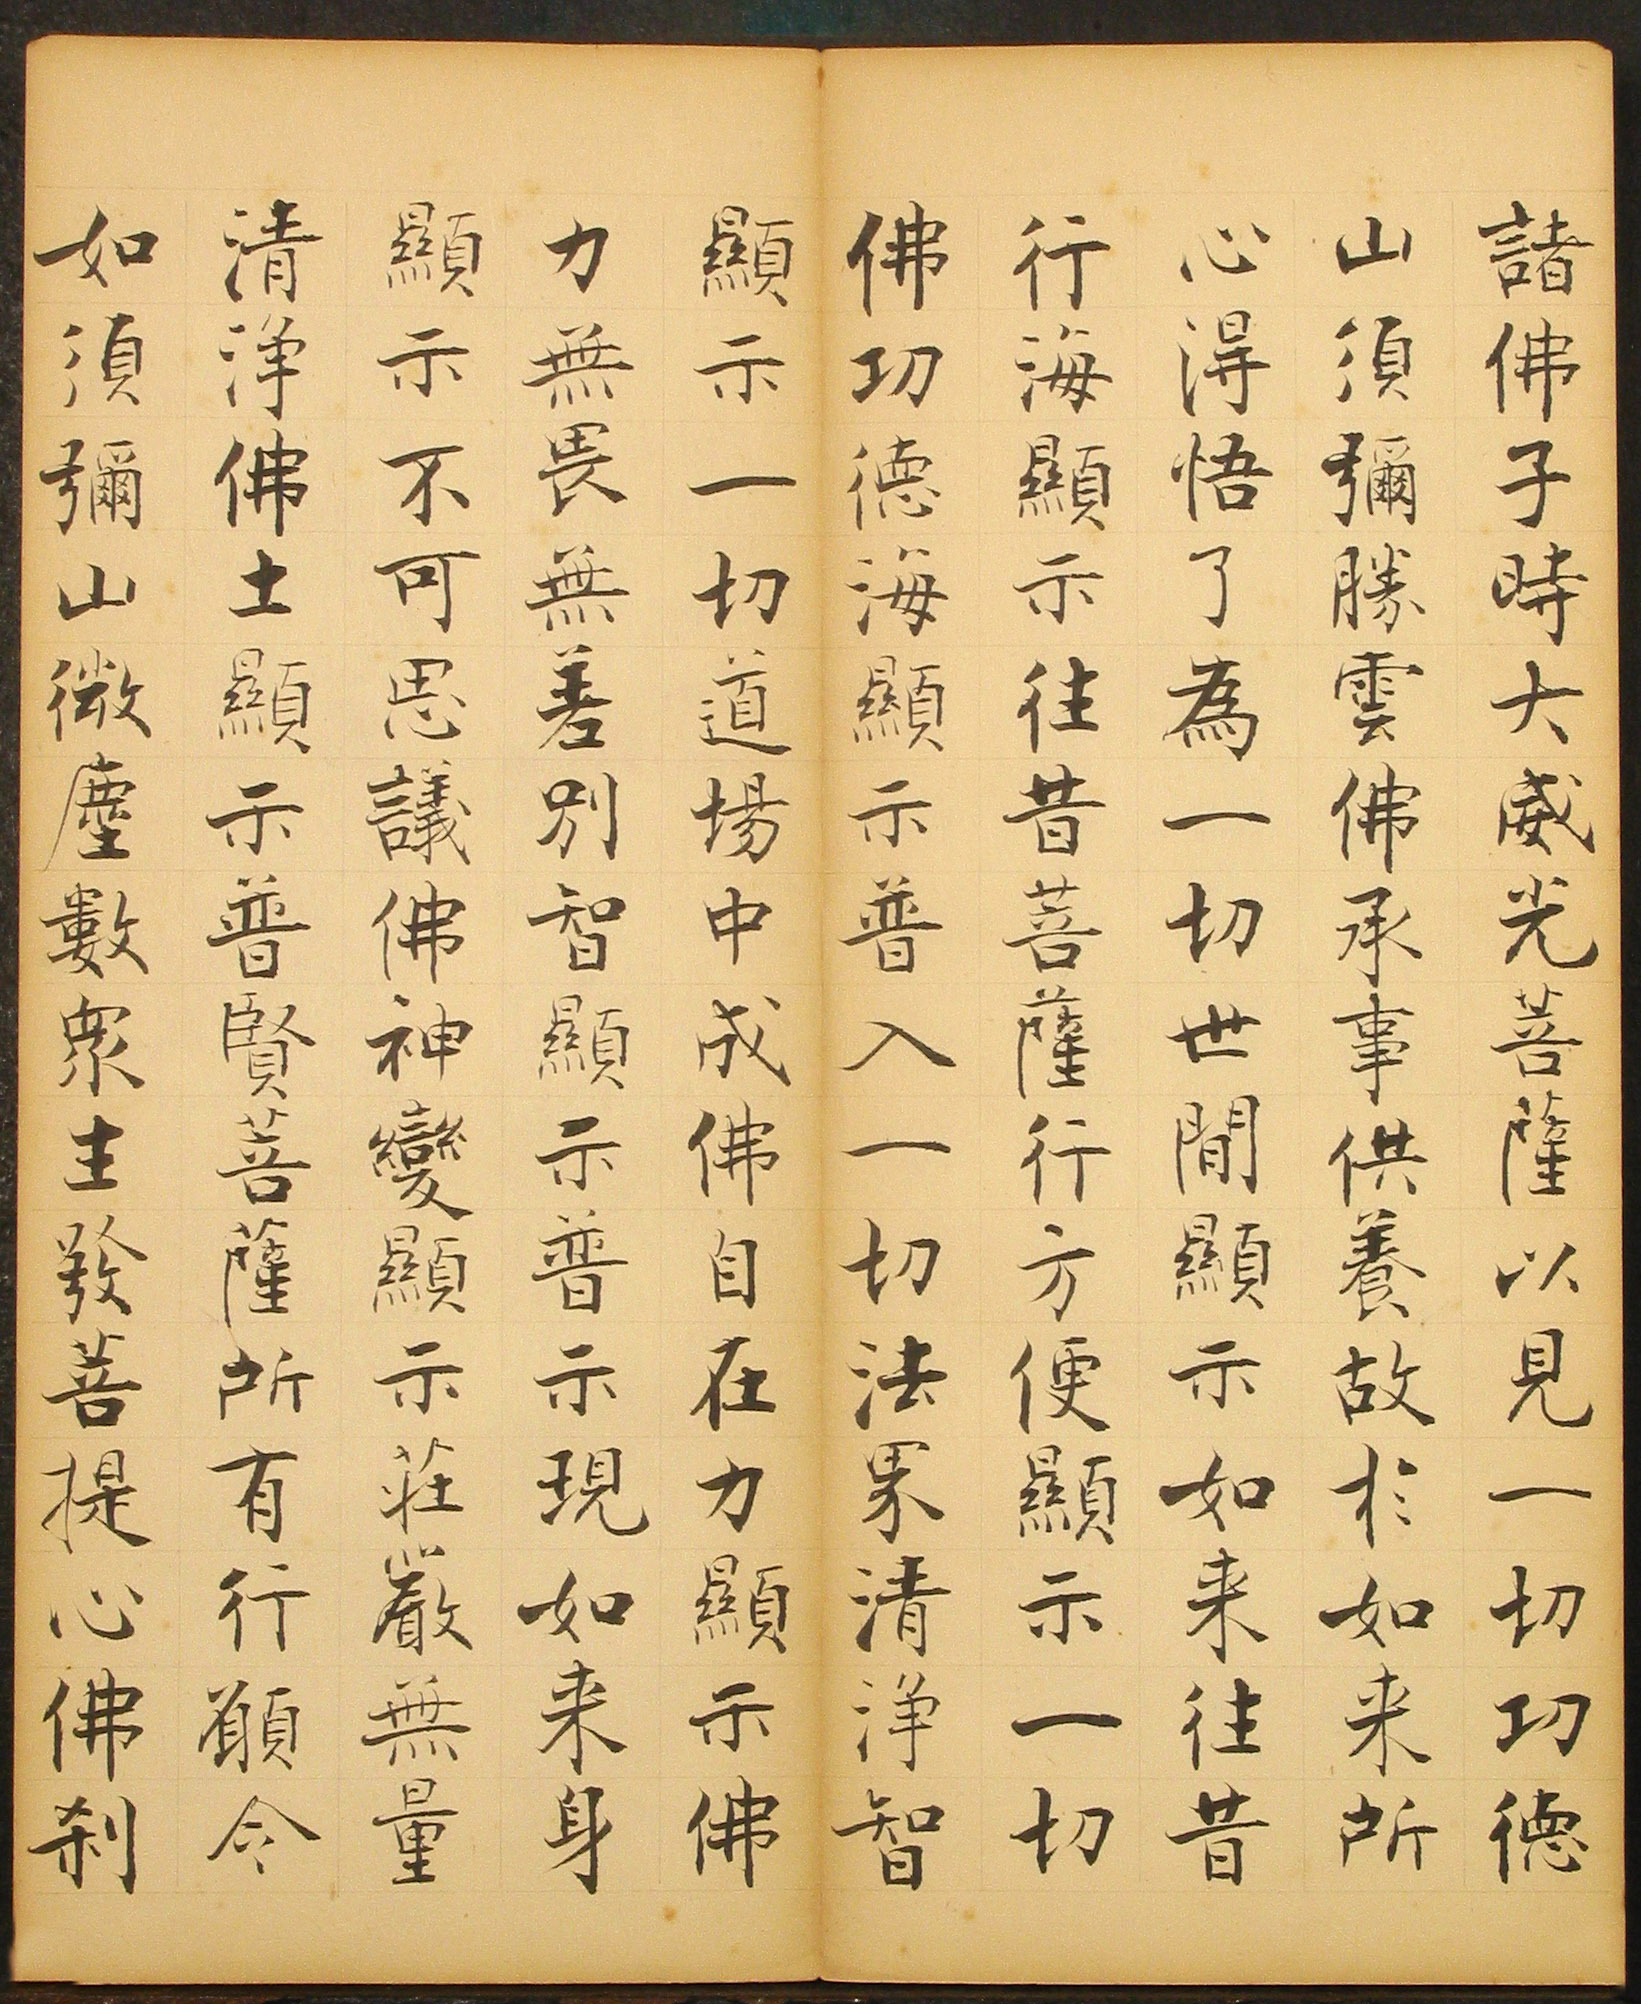 諸佛子時大威光菩薩以見一切功德
山須彌勝雲佛承事供養故於如来所
心得悟了為一切世間顯示如来往昔
行海顯示往昔菩薩行方便顯示一切
佛功德海顯示普入一切法界清淨智
顯示一切道場中成佛自在力顯示佛
力無畏無差別智顯示普示現如来身
顯示不可思議佛神變顯示莊嚴無量
清淨佛土顯示普賢菩薩所有行願令
如須彌山微塵數衆生發菩提心佛刹